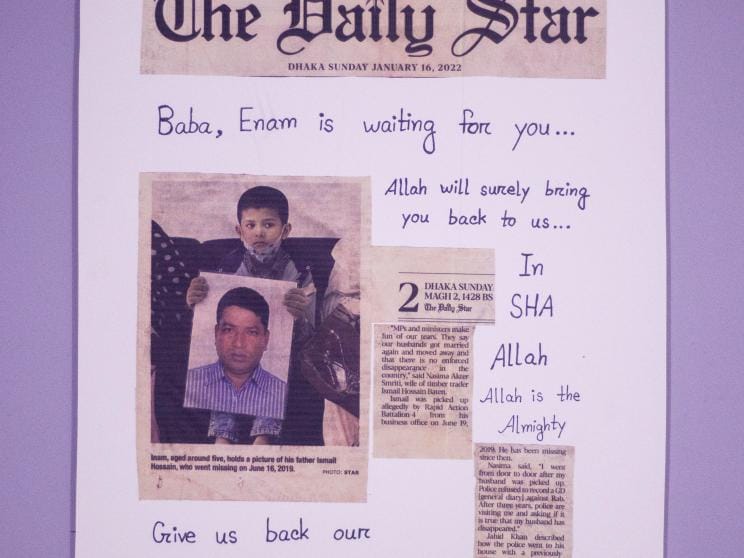 The Daily Star
DHAKA SUNDAY JANUARY 16, 2022
Baba, Enam is waiting for you...
Allah will surely bring
you back to us...
In
SHA
Allah
Allah is the
Almighty
Inam, aged around five, holds a picture of his father Ismail
Hossain, who went missing on June 16, 2019.
PHOTO: STAR
2
DHAKA SUNDAY
MAGH 2, 1428 BS
The Daily Star
"MPs and ministers make
fun of our tears. They say
our husbands got married
again and moved away and
that there is no enforced
disappearance in the
country," said Nasima Akter
Smriti, wife of timber trader
Ismail Hossain Baten.
Ismail was picked up
allegedly by Rapid Action
Battalion-4 from his
business office on June 19,
2019. He has been missing
since then.
Nasima said, "I went
from door to door after my
husband was picked up.
Police refused to record a GD
[general diary] against Rab.
After three years, police are
visiting me and asking if it
is true that my husband has
disappeared."
Jahid Khan described
how the police went to his
house with a previously
Give us back our